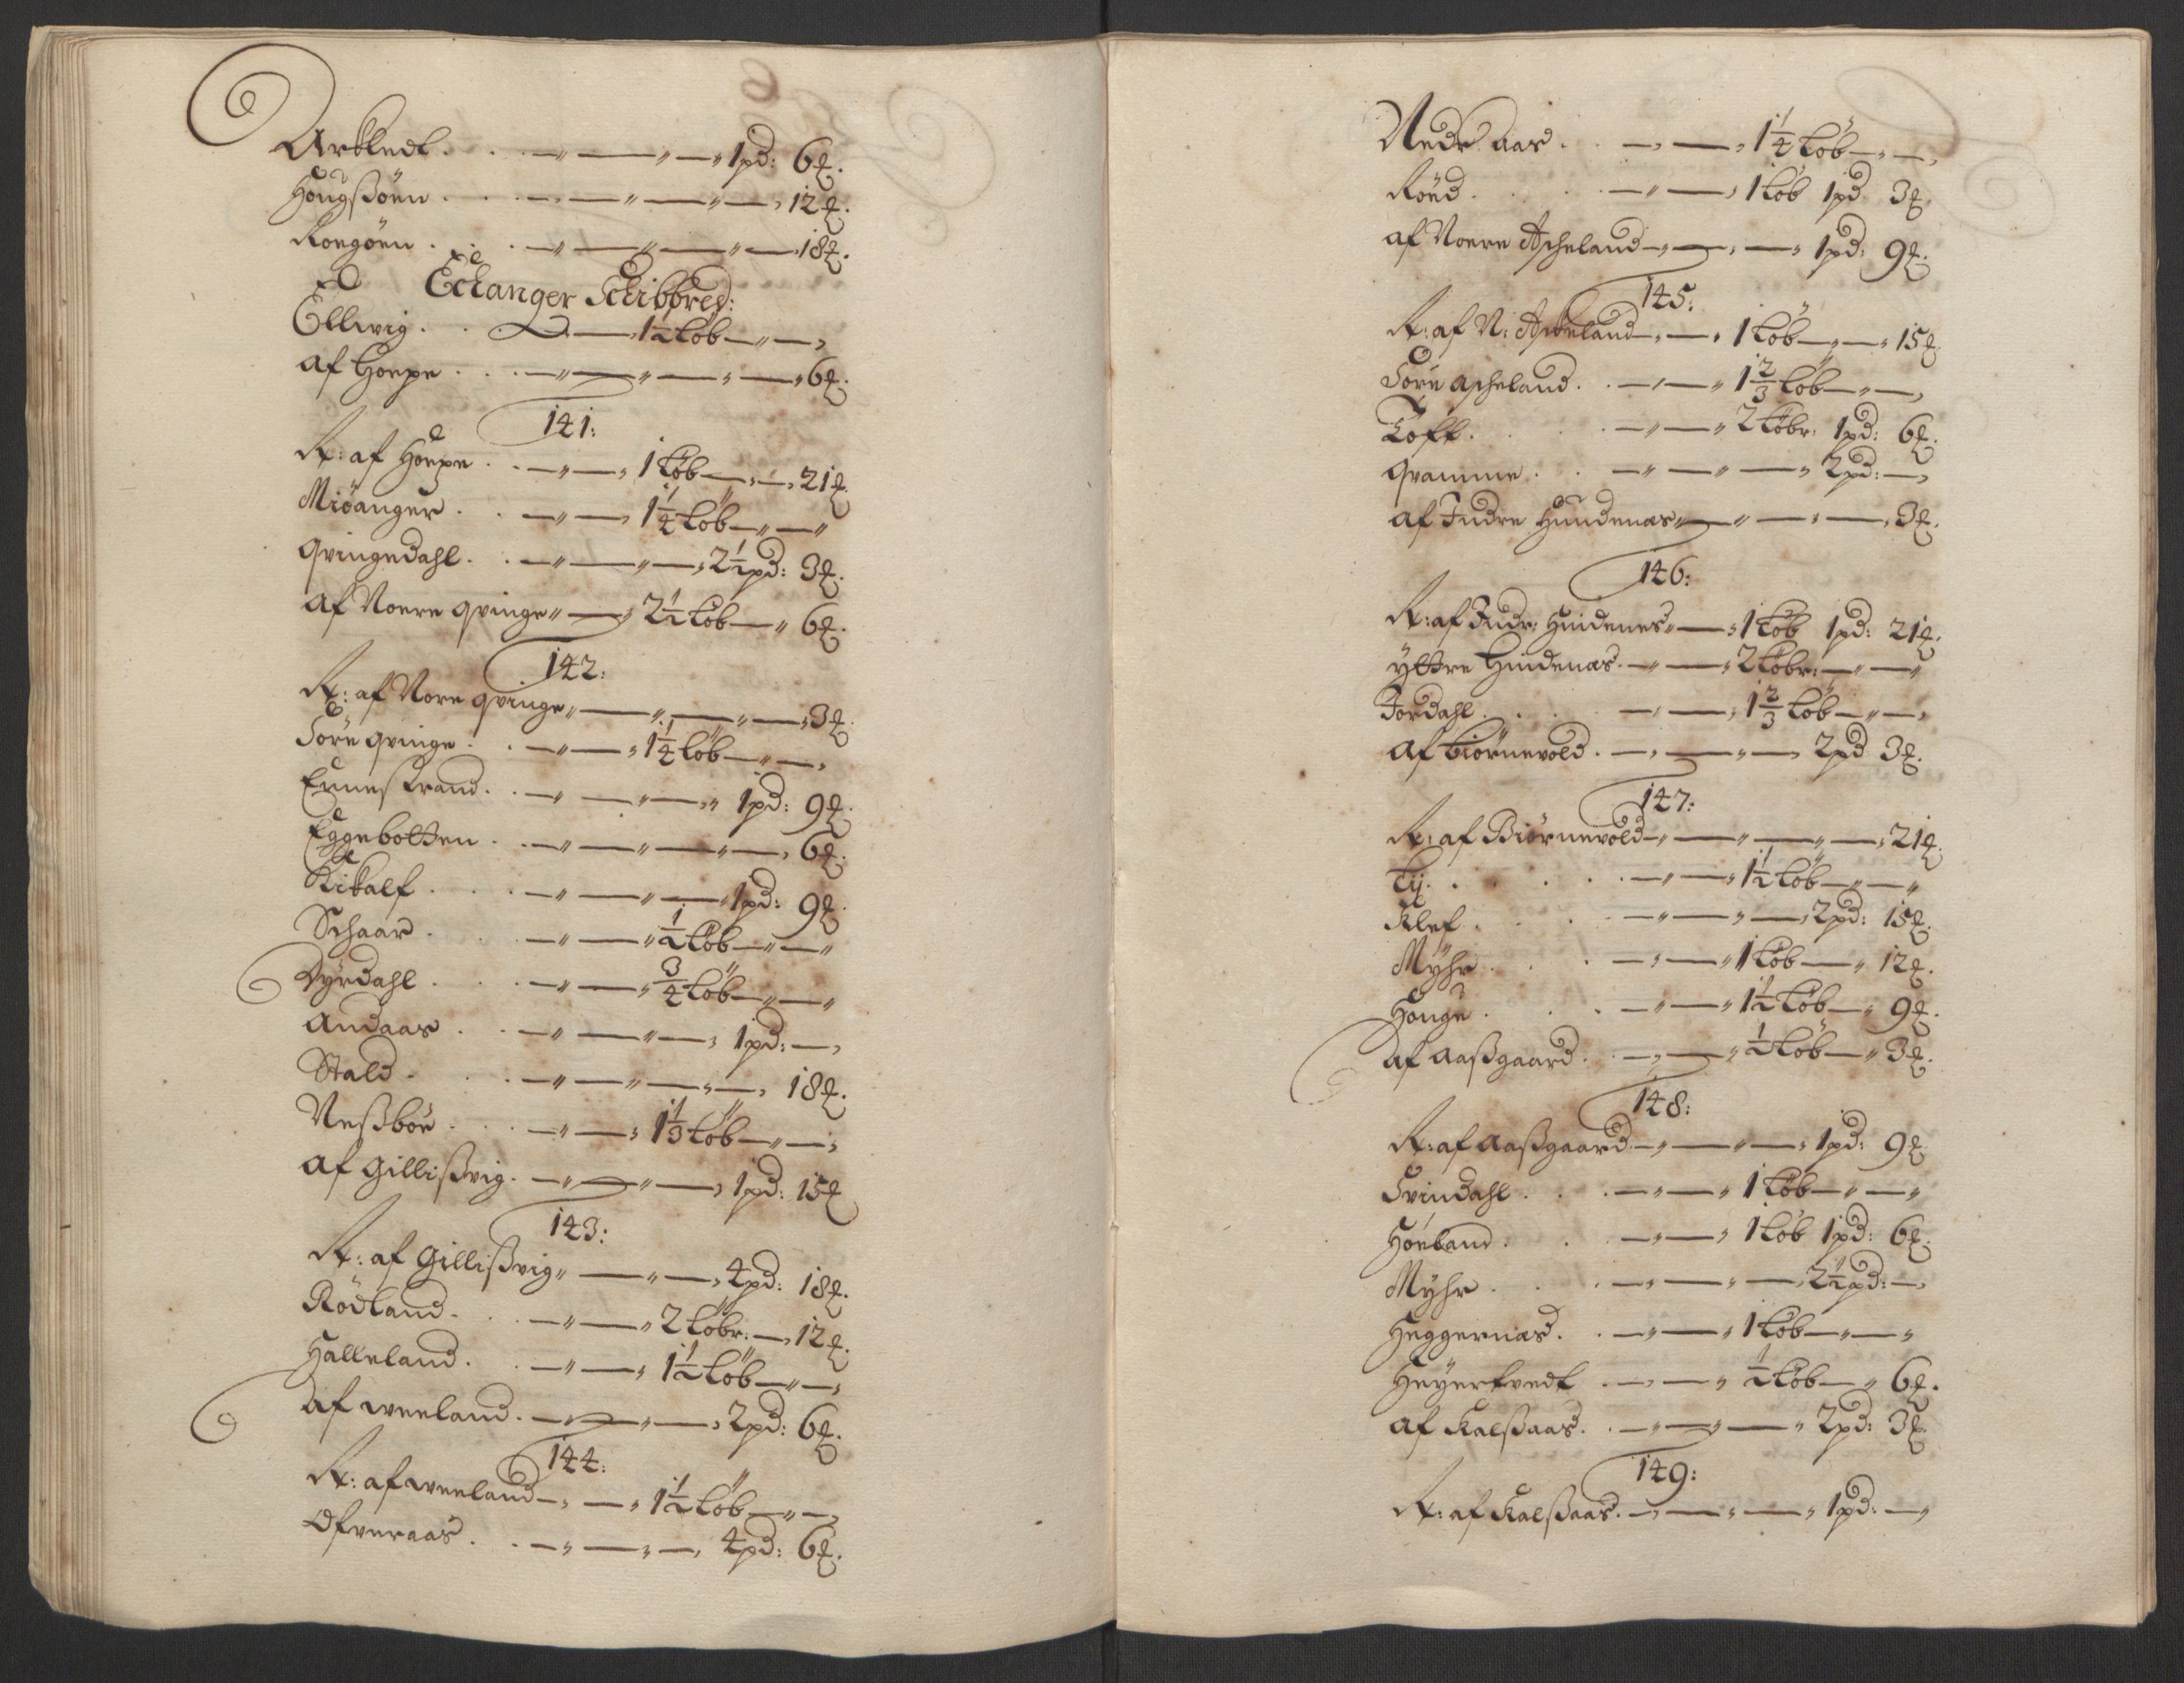 Arkledt . . . —"— " — " 1 pd: 6 ℔.
Hougssøen . . —"— " — " — " 12 ℔.
Rongøen . . —"— " — " — " 18 ℔.
Echanger Schibbred:
Ellwig . . — " 1½ Løb — " — "
af Hoepe . . . —"— " — " — " 6 ℔.
141:
R: af Hoepe . . —"— " 1 Løb — " — " 21 ℔.
Miöanger . . —"— " 1¼ Löb — " — "
Qvingedahl . . —"— " — " 2½ pd: 3 ℔.
af Noere Qvinge " — " 2½ Løb — " 6 ℔.
142:
R: af Nore Qvinge " — " — " — " 3 ℔.
Söre Qvinge . . —"— " 1¼ Löb — " — "
Ernestrand . . — " — " — " 1 pd: 9 ℔.
Eggebotten . . —"— " — " — " 6 ℔.
Kikalf . . . —"— " — " 1 pd: 9 ℔.
Schaar . . . —"— " ½ Löb — " — "
Dyrdahl . . . —"— " ¾ Löb — " — "
Andaas . . —"— " — " 1 pd: — "
Stald . . . —"— " — " — " 18 ℔.
Nessbøe . . . —"— " 1⅓ Löb — " — "
af Gillissvig . —"— " — " 1 pd: 15 ℔
143:
R: af Gillissvig " — " — " 4 pd: 18 ℔.
Rödland . . . —"— " 2 Løbr: — " 12 ℔.
Halleland . . —"— " 1½ Löb — " — "
af weeland . —"— " — " 2 pd: 6 ℔.
144:
R: af weeland — " — " 1½ Löb — " — "
Ofveraas . . —"— " — " 4 pd: 6 ℔.
Nedr Aas . . — " — " 1¼ Löb — " — "
Röed . . . —"— " 1 Løb 1 pd 3 ℔.
af Noere Ascheland — " — " — " 1 pd: 9 ℔.
145:
R: af N: Ascheland — " — " 1 Løb — " — " 15 ℔.
Sörе Ascheland . . — " — " 1⅔ Löb — " — "
Toft . . . —"— " 2 Løbr: 1 pd: 6 ℔.
Qvamme . . —"— " — " 2 pd: — "
af Indre Hundenæs " — " — " — " 3 ℔.
146:
R: af Indr: Hindenes " — " 1 Løb 1 pd: 21 ℔.
Yttre Hindenæs . —"— " 2 Løbr: — " — "
Jordahl . . . — " — " 1⅔ Löb — " — "
af Biörnevold . — " — " — " 2 pd 3 ℔.
147:
R: af Biörnevold — " — " — " — " 21 ℔.
Lij . . . . —"— " 1½ Löb — " — "
Klef . . . —"— " — " 2 pd: 15 ℔.
Myhr . . . — " — " 1 Løb — " 12 ℔.
Houge . . . —"— " 1½ Løb — " 9 ℔.
af Aassgaard . . — " — " ½ Löb — " 3 ℔.
148:
R: af Aassgaard — " — " — " 1 pd: 9 ℔.
Svindahl . . . — " — " 1 Løb — " — "
Høeland . . . — " — " 1 Løb 1 pd: 6 ℔.
Myhr . . . — " — " — " 2½ pd: — "
Heggernæs . . — " — " 1 Løb — " — "
Heyertvedt . . — " — " ½ Löb — " 6 ℔.
af Kalssaas . . — " — " — " 2 pd: 3 ℔.
149:
R: af Kalssaas . — " — " — " 1 pd: — "